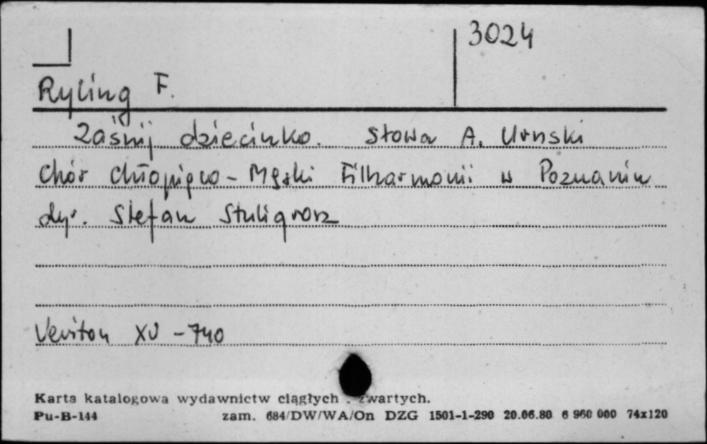 3024
Ryling F.
Zaśnij dziecinko. Słowa A. Urnski
Chór Chłopięco - Męski Filharmonii w Poznaniu
dyr. Stefan Stuligrosz
Veriton XV - 740
Karta katalogowa wydawnictw ciągłych . zwartych.
Pu-B-144 zam. 684/DW/WA/On DZG 1501-1-290 20.06.80 6 960 000 74x120